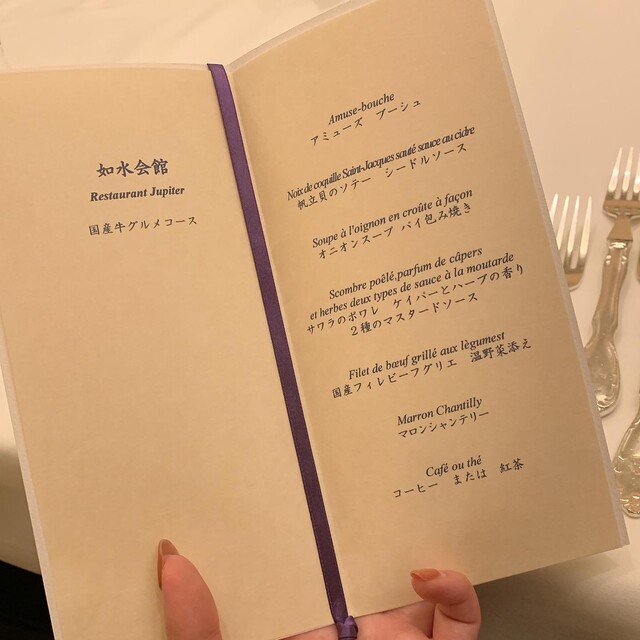 如水会館
Restaurant Jupiter
国産牛グルメコース
Amuse-bouche
アミューズ ブーシュ
Noix de coquille Saint-Jacques sauté sauce au cidre
帆立貝のソテー シードルソース
Soupe à l'oignon en croûte à façon
オニオンスープ パイ包み焼き
Scombre poêlé,parfum de câpers
et herbes deux types de sauce à la moutarde
サワラのポワレ ケイパーとハーブの香り
２種のマスタードソース
Filet de bœuf grillé aux lègumest
国産フィレビーフグリエ 温野菜添え
Marron Chantilly
マロンシャンテリー
Café ou thé
コーヒー または 紅茶